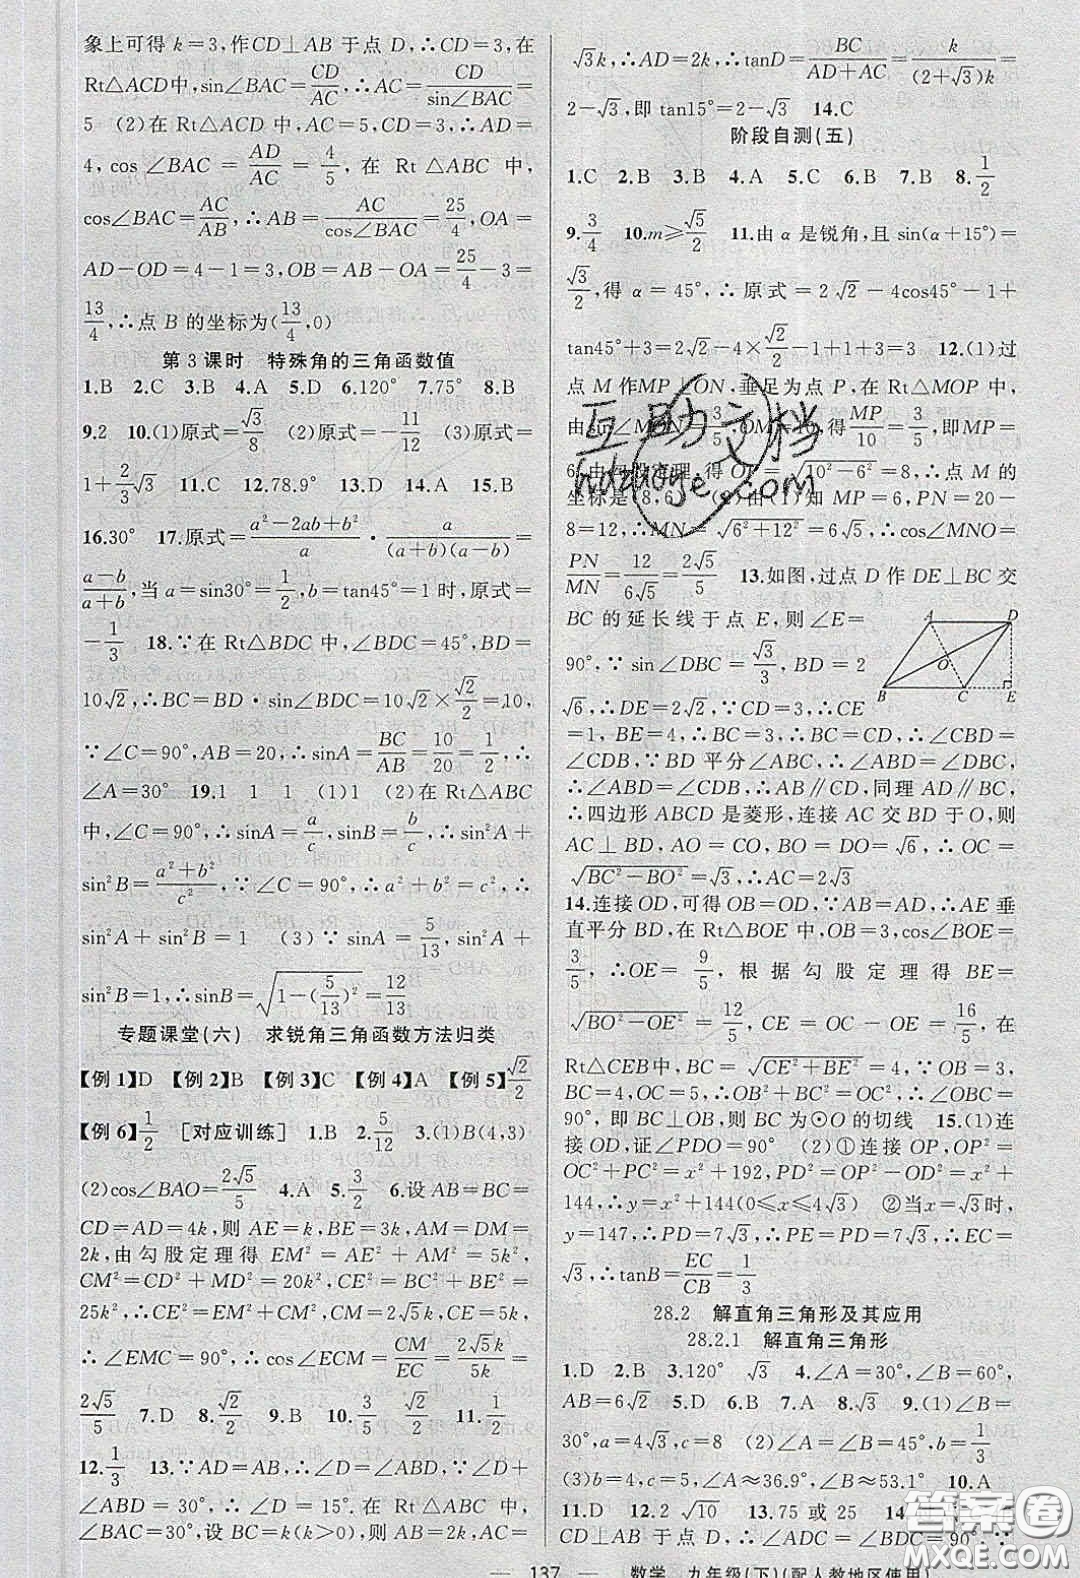 象上可得 k=3,作CD⊥AB 于点 D,∴CD=3,在
Rt△ACD中,sin∠BAC=CD/AC,∴AC=CD/sin∠BAC=
5 (2)在 Rt△ACD 中,AC=5,CD=3,∴AD=
4,cos ∠BAC=AD/AC=4/5,在 Rt △ABC 中,
cos∠BAC=AC/AB,∴AB=AC/cos∠BAC=25/4,OA=
AD-OD=4-1=3,OB=AB-OA=25/4-3=
13/4,∴点 B 的坐标为(13/4,0)
第3课时 特殊角的三角函数值
1.B 2.C 3.B 4.A 5.D 6.120° 7.75° 8.B
9.2 10.(1)原式=√3/8 (2)原式=-11/12 (3)原式=
1+2/3√3 11.C 12.78.9° 13.D 14.A 15.B
16.30° 17.原式=(a²-2ab+b²)/a·a/((a+b)(a-b))=
(a-b)/(a+b),当 a=sin30°=1/2,b=tan45°=1时,原式=
-1/3 18.∵在 Rt△BDC 中,∠BDC=45°,BD=
10√2,∴BC=BD·sin∠BDC=10√2×√2/2=10,
∵∠C=90°,AB=20,∴sinA=BC/AB=10/20=1/2,∴
∠A=30° 19.1 1 1 (1)1 (2)在Rt△ABC
中,∠C=90°,∴sinA=a/c,sinB=b/c,∴sin²A+
sin²B=(a²+b²)/c²,∵∠C=90°,∴a²+b²=c²,∴
sin²A+sin²B=1 (3)∵sinA=5/13,sin²A+
sin²B=1,∴sinB=√(1-(5/13)²)=12/13
专题课堂(六) 求锐角三角函数方法归类
【例1】D 【例2】B 【例3】C 【例4】A 【例5】√2/2
【例6】1/2 [对应训练] 1.B 2.5/12 3.(1)B(4,3)
(2)cos∠BAO=2√5/5 4.A 5.3/2 6.设 AB=BC=
CD=AD=4k,则 AE=k,BE=3k,AM=DM=
2k,由勾股定理得 EM²=AE²+AM²=5k²,
CM²=CD²+MD²=20k²,CE²=BC²+BE²=
25k²,∴CE²=EM²+CM²,CM=2√5k,CE=5k,
∴∠EMC=90°,∴cos∠ECM=CM/EC=2√5k/5k=
2√5/5 7.D 8.√2/2 9.B 10.3/5 11.1/2
12.1/3 13.∵AD=AB,∴∠D=∠ABD,∵∠D+
∠ABD=30°,∴∠D=15°.在 Rt△ABC 中,
∠BAC=30°,设 BC=k(k>0),则 AB=2k,AC=
√3k,∴AD=2k,∴tanD=BC/(AD+AC)=k/((2+√3)k)=
2-√3,即 tan15°=2-√3 14.C
阶段自测(五)
1.C 2.B 3.B 4.A 5.C 6.B 7.B 8.1/2
9.3/4 10.m≥√5/2 11.由 α 是锐角,且 sin(α+15°)=
√3/2,得 α=45°,∴原式=2√2-4cos45°-1+
tan45°+3=2√2-4×√2/2-1+1+3=3 12.(1)过
点 M 作MP⊥ON,垂足为点 P,在 Rt△MOP 中,
由sin∠MON=3/5,OM=10,得MP/10=3/5,即MP=
6,由勾股定理,得 OP=√(10²-6²)=8,∴点 M 的
坐标是(8,6) (2)由(1)知 MP=6,PN=20-
8=12,∴MN=√(6²+12²)=6√5,∴cos∠MNO=
PN/MN=12/6√5=2√5/5 13.如图,过点 D 作 DE⊥BC 交
BC 的延长线于点 E,则∠E=
90°,∵sin∠DBC=√3/3,BD=2
√6,∴DE=2√2,∵CD=3,∴CE
=1,BE=4,∴BC=3,∴BC=CD,∴∠CBD=
∠CDB,∵BD 平分∠ABC,∴∠ABD=∠DBC,
∴∠ABD=∠CDB,∴AB∥CD,同理 AD∥BC,
∴四边形 ABCD 是菱形,连接 AC 交 BD 于 O,则
AC⊥BD,AO=CO,BO=DO=√6,∴OC=
√(BC²-BO²)=√3,∴AC=2√3
14.连接 OD,可得 OB=OD,∵AB=AD,∴AE 垂
直平分 BD,在 Rt△BOE 中,OB=3,cos∠BOE=
3/5,∴OE=9/5,根据勾股定理得 BE=
√(BO²-OE²)=12/5,CE=OC-OE=16/5,在
Rt△CEB中,BC=√(CE²+BE²)=4,∵OB=3,
BC=4,OC=5,∴OB²+BC²=OC²,∴∠OBC=
90°,即 BC⊥OB,则 BC 为⊙O 的切线 15.(1)连
接 OD,证∠PDO=90° (2)①连接 OP,OP²=
OC²+PC²=x²+192,PD²=OP²-OD²=x²+
144,∴y=x²+144(0≤x≤4√3) ②当x=√3时,
y=147,∴PD=7√3,∴PE=PD=7√3,∴EC=
√3,∴tanB=EC/CB=1/3
28.2 解直角三角形及其应用
28.2.1 解直角三角形
1.D 2.B 3.120° √3 4.∠A=30°,∠B=60°,
AB=6√2 5.D 6.B 7.A 8.A 9.(1)∠B=
30°,a=4√3,c=8 (2)∠A=∠B=45°,b=√2
(3)b=4,c=5,∠A≈36.9°,∠B≈53.1° 10.A
11.D 12.2√10 13.75 或 25
CD⊥AB 于点 D,∴∠ADC=∠BDC=90°∵
A D O B C E
互助文档
hdzuoye.com
答案圈
MXQE.COM
— 137 — 数学 九年级(下)(配人教地区使用)